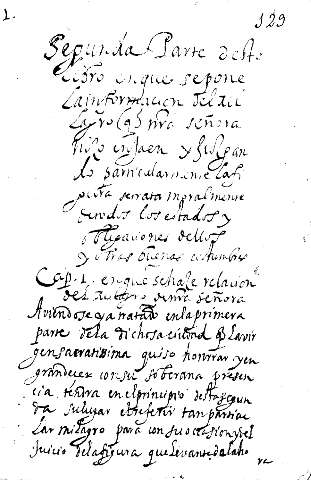 1. 129
Segunda Parte deste
libro en que se pone
la informacion del mi
lagro (q) nrã señora
hizo en Jaen y Juzgan
do particularmente la fi
gura se trata moralmente
de todos los estados y
obligaciones dellos
y otras buenas costumbres
Cap. 1. en que se haze relacion
del milagro de nrã señora
Aviendose ya tratado en la primera
parte de la dichosa ciudad q la vir
gen sacratissima quiso honrrar y en
grandecer con su soberana presen
cia, tendra en el principio desta segun
da su lugar el referir tan particu
lar milagro para con su occasion y el
juicio de la figura que levante de la ho
ra